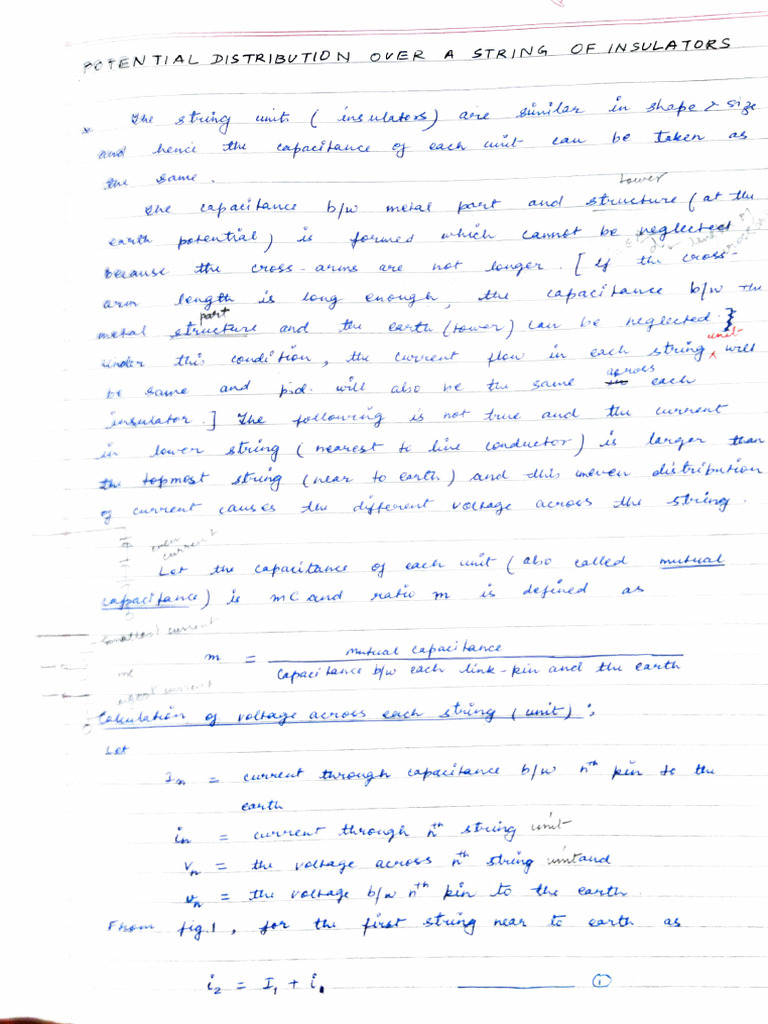 POTENTIAL DISTRIBUTION OVER A STRING OF INSULATORS
* The string units (insulators) are similar in shape & size
and hence the capacitance of each unit can be taken as
the same.
Tower
The capacitance b/w metal part and structure (at the
earth potential) is formed which cannot be neglected
because the cross-arms are not longer. [If the cross-
arm length is long enough, the capacitance b/w the
part
metal structure and the earth (tower) can be neglected.}
under this condition, the current flow in each string unit will
be same and p.d. will also be the same across each
insulator.] The following is not true and the current
in lower string (nearest to line conductor) is larger than
the topmost string (near to earth) and this uneven distribution
of current causes the different voltage across the string.
current
Let the capacitance of each unit (also called mutual
capacitance) is mC and ratio m is defined as
current
m = mutual capacitance
Capacitance b/w each link-pin and the earth
current
Calculation of voltage across each string (unit) :
Let
In = current through capacitance b/w nth pin to the
earth
in = current through nth string unit
Vn = the voltage across nth string unit and
vn = the voltage b/w nth pin to the earth.
From fig.1, for the first string near to earth as
i2 = I1 + i1 ①